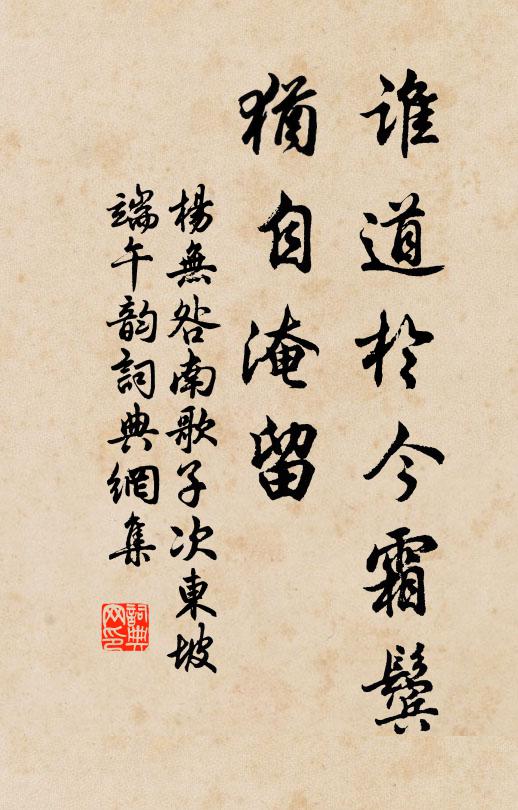 誰道於今霜鬢
猶自淹留
楊無咎南歌子次東坡
端午韵詞典網集
詞典網印